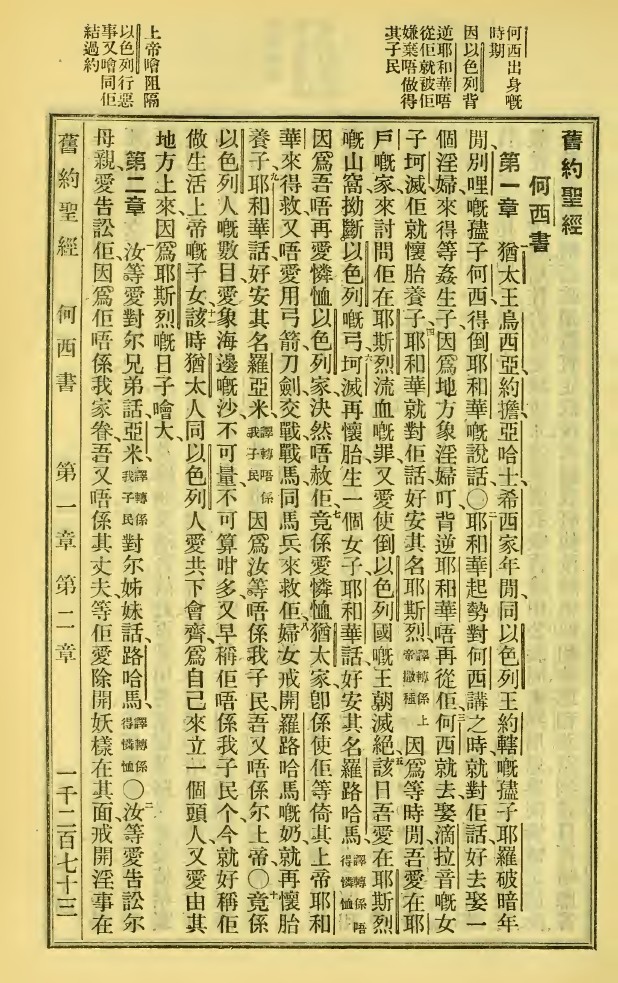 何西出身嘅
時期
因以色列背
逆耶和華唔
從佢就被佢
嫌棄唔做得
其子民
上帝噲阻隔
以色列行惡
事又噲同佢
結過約
舊約聖經
何西書
第一章 一猶太王烏西亞、約擔、亞哈士、希西家年間、同以色列王約轄嘅孻子耶羅破暗年
間、別哩嘅孻子何西得倒耶和華嘅說話、〇二耶和華起勢對何西講之時、就對佢話、好去娶一
個淫婦來、得等姦生子、因爲地方象淫婦叮背逆耶和華、唔再從佢、三何西就去娶滴拉音嘅女
子坷滅、佢就懷胎養子、四耶和華就對佢話、好安其名耶斯烈、譯轉係上帝撒種 因爲等時間、吾愛在耶
戶嘅家來討問佢在耶斯烈流血嘅罪、又愛使倒以色列國嘅王朝滅絕、五該日吾愛在耶斯烈
嘅山窩拗斷以色列嘅弓、六坷滅再懷胎、生一個女子、耶和華話、好安其名羅路哈馬、譯轉係唔得憐恤
因爲吾唔再愛憐恤以色列家、決然唔赦佢、七竟係愛憐恤猶太家、卽係使佢等倚其上帝耶和
華來得救、又唔愛用弓箭刀劍、交戰戰馬同馬兵來救佢、八婦女戒開羅路哈馬嘅奶、就再懷胎
養子、九耶和華話、好安其名羅亞米、譯轉唔係我子民 因爲汝等唔係我子民、吾又唔係尔上帝、〇十竟係
以色列人嘅數目、愛象海邊嘅沙、不可量、不可算咁多、又早稱佢唔係我子民个、今就好稱佢
做生活上帝嘅子女、十一該時猶太人同以色列人愛共下會齊、爲自己來立一個頭人、又愛由其
地方上來、因爲耶斯烈嘅日子噲大、
第二章 一汝等愛對尔兄弟話、亞米、譯轉係我子民 對尔姊妹話、路哈馬、譯轉係得憐恤 〇二汝等愛告訟尔
母親、愛告訟佢、因爲佢唔係我家眷、吾又唔係其丈夫、等佢愛除開妖樣在其面、戒開淫事在
舊約聖經 何西書 第一章 第二章 一千二百七十三